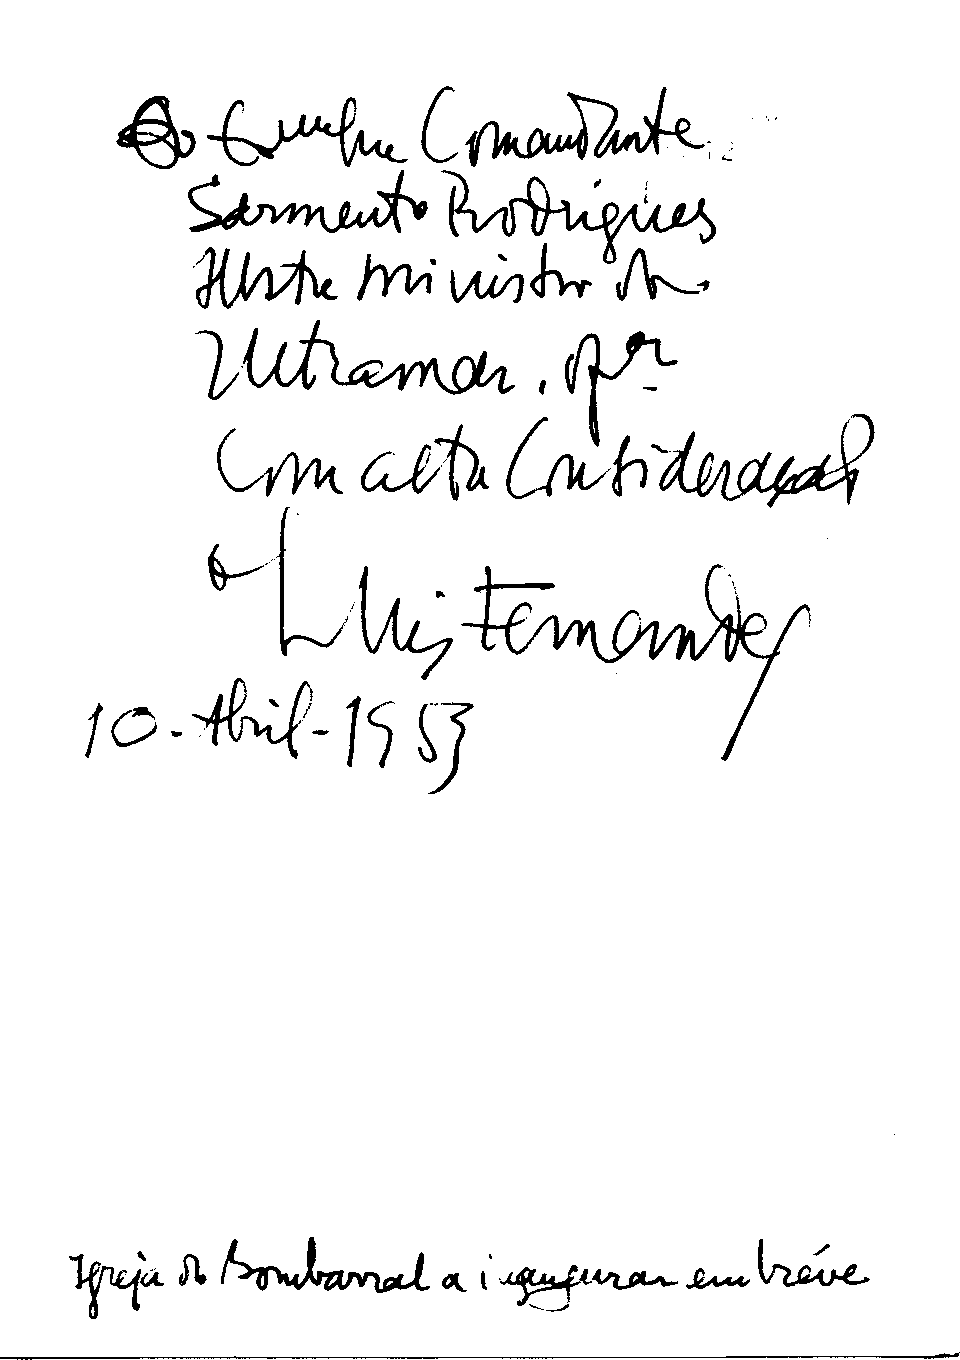 Ao Comandante
Sarmento Rodrigues
Ilustre Ministro do
Ultramar. of.er
Com alta Consideração
o Luis Fernandes
10-Abril-1953
Igreja do Bombarral a inaugurar em bréve